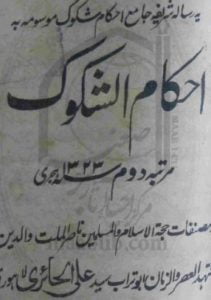 یہ رسالہ شریفہ جامع احکام شکوک موسومہ بہ
احکام الشکوک
مرتبہ دوم سنہ ۱۳۲۳ ہجری
مصنفات حجۃ الاسلام والمسلمین ناصر الملت والدین
مجتہد العصر والزمان ابو تراب سید علی الحائری لاہوری